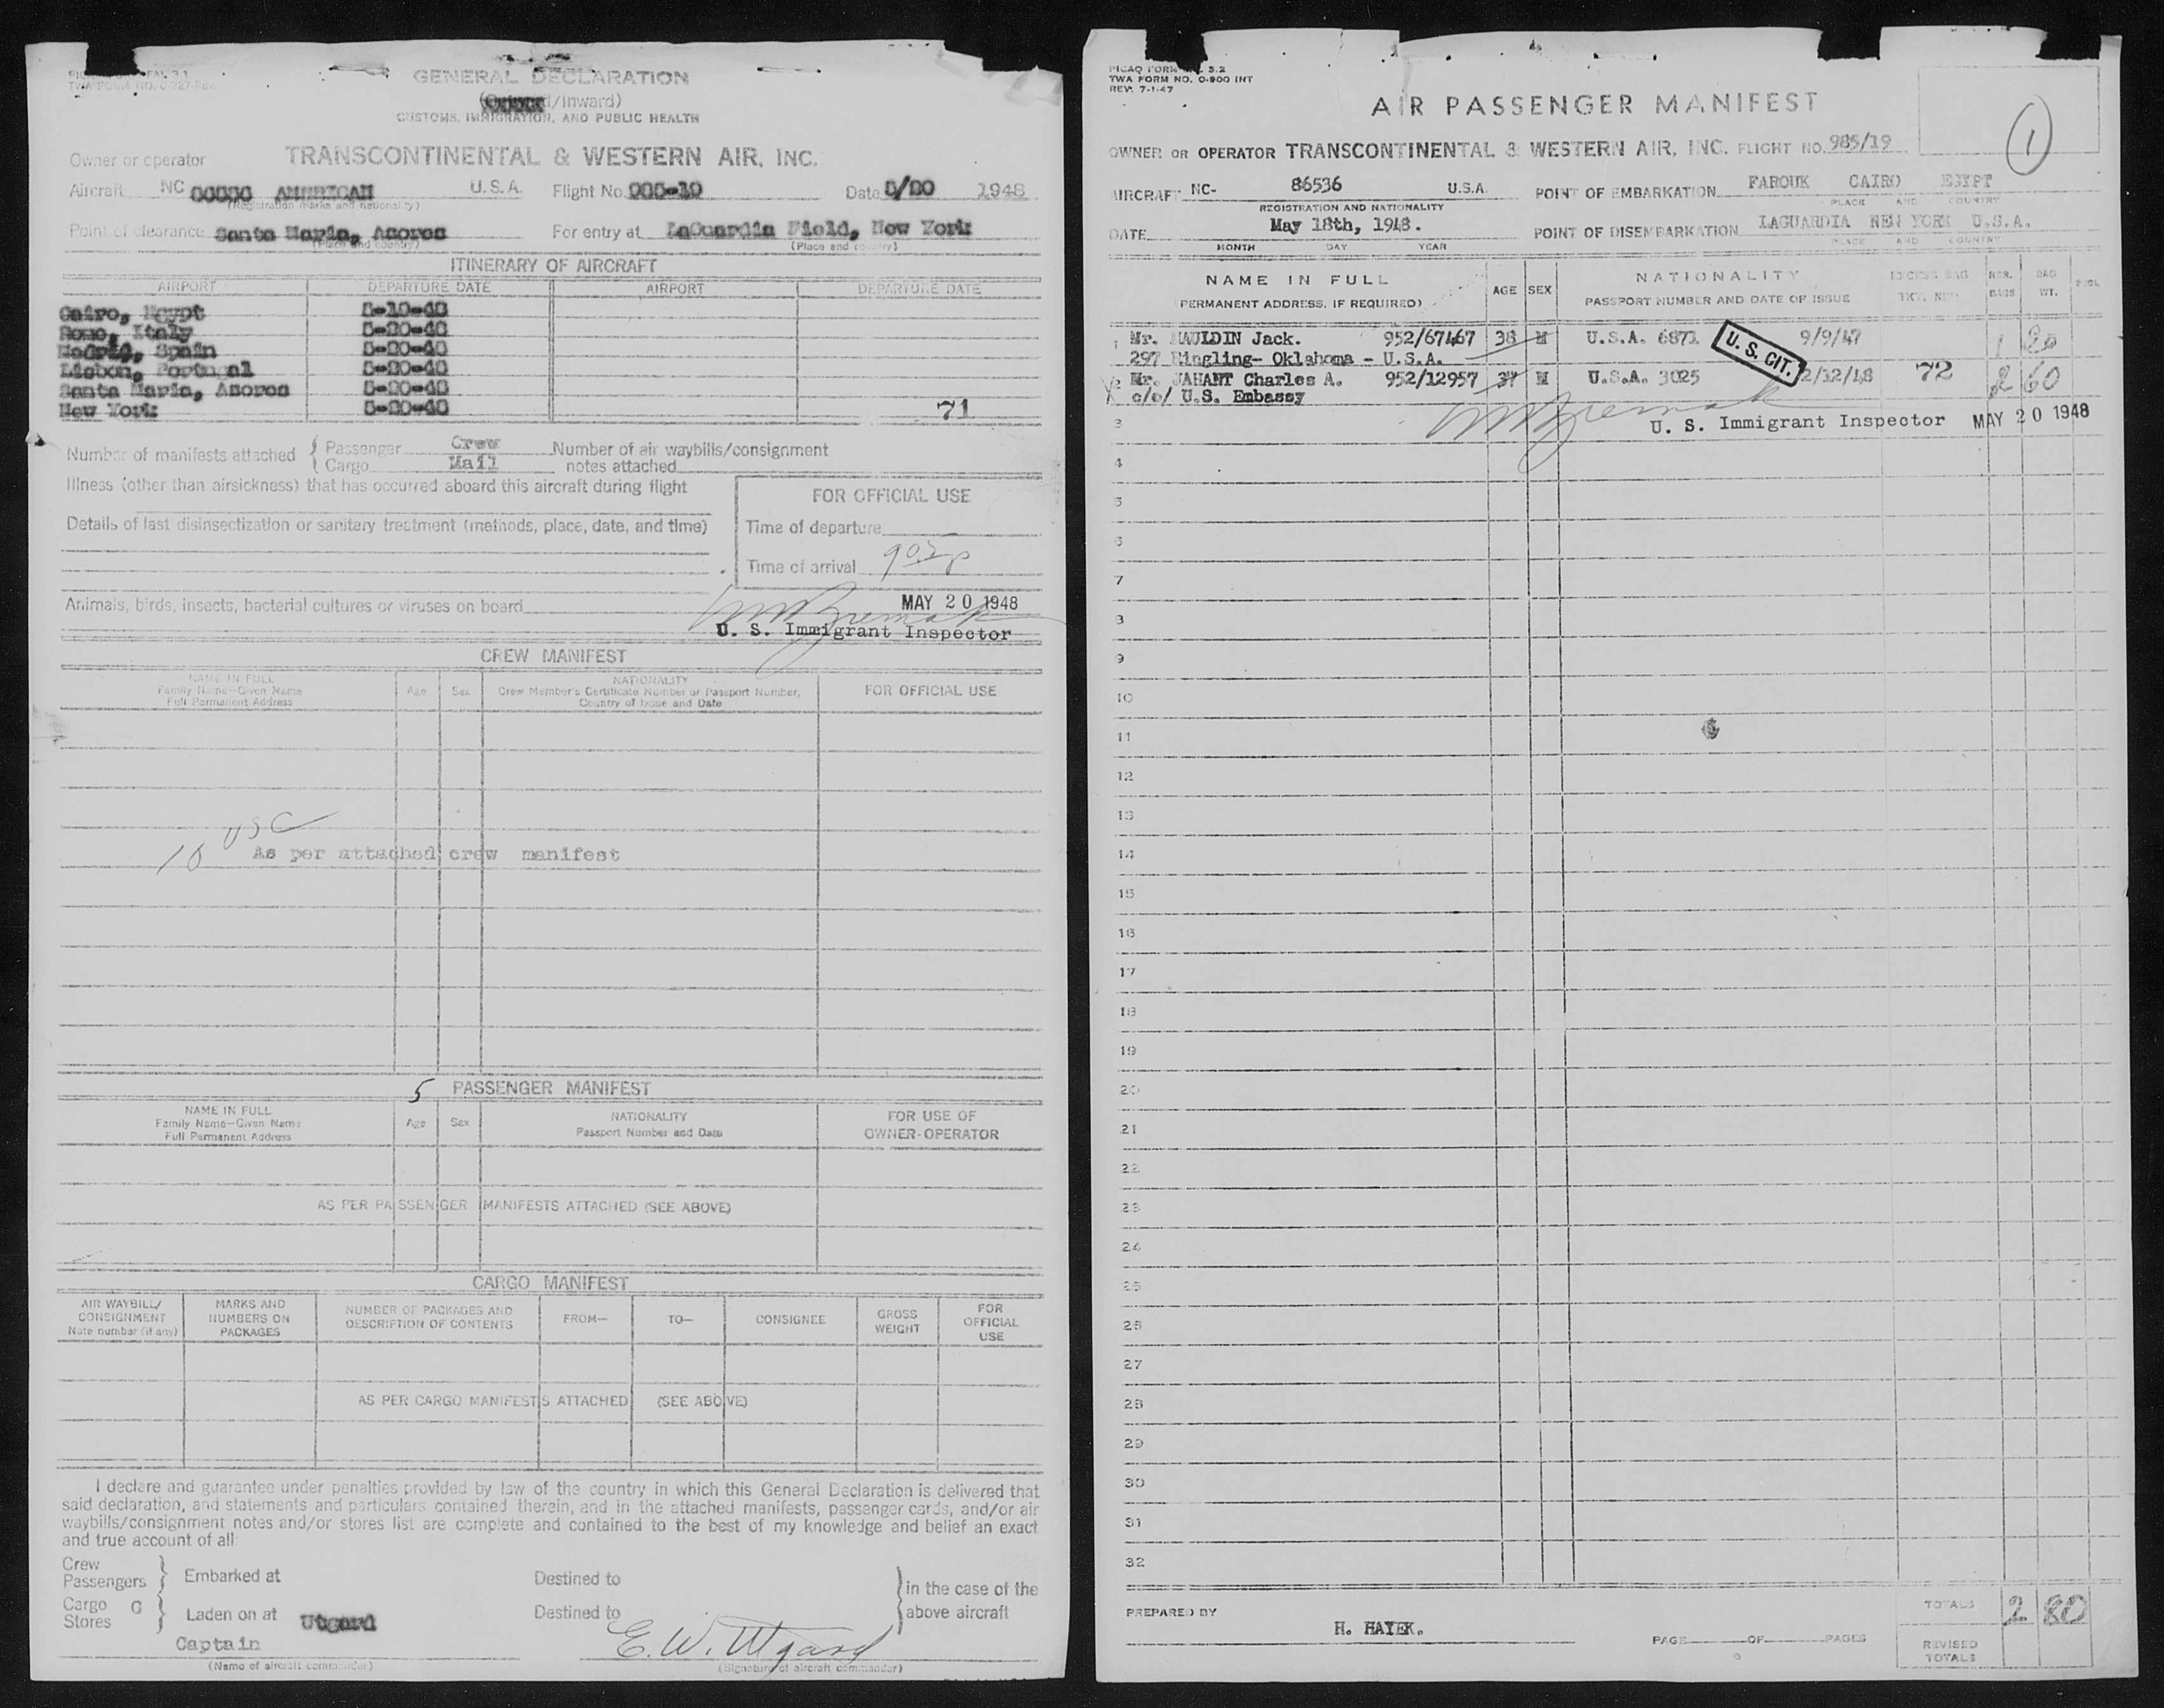 GENERAL DECLARATION
/Inward)
CUSTOMS, IMMIGRATION, AND PUBLIC HEALTH
Owner or operator TRANSCONTINENTAL & WESTERN AIR, INC.
Aircraft NC AMERICAN U.S.A. Flight No. Date 5/20 1948
(Registration marks and nationality)
Point of clearance Santa Maria, Azores For entry at LaGuardia Field, New York
(Place and country) (Place and country)
ITINERARY OF AIRCRAFT
AIRPORT DEPARTURE DATE AIRPORT DEPARTURE DATE
Cairo, Egypt 5-19-48
Rome, Italy 5-20-48
Madrid, Spain 5-20-48
Lisbon, Portugal 5-20-48
Santa Maria, Azores 5-20-48
New York 5-20-48 71
Number of manifests attached { Passenger Crew Number of air waybills/consignment
Cargo Mail notes attached
Illness (other than airsickness) that has occurred aboard this aircraft during flight
Details of last disinsectization or sanitary treatment (methods, place, date, and time)
FOR OFFICIAL USE
Time of departure
Time of arrival 905p
Animals, birds, insects, bacterial cultures or viruses on board
MAY 20 1948
U. S. Immigrant Inspector
CREW MANIFEST
NAME IN FULL
Family Name—Given Name
Full Permanent Address
Age Sex
NATIONALITY
Crew Member's Certificate Number or Passport Number,
Country of Issue and Date
FOR OFFICIAL USE
10 USC
As per attached crew manifest
5 PASSENGER MANIFEST
NAME IN FULL
Family Name—Given Name
Full Permanent Address
Age Sex
NATIONALITY
Passport Number and Date
FOR USE OF
OWNER-OPERATOR
AS PER PASSENGER MANIFESTS ATTACHED (SEE ABOVE)
CARGO MANIFEST
AIR WAYBILL/
CONSIGNMENT
Note number (if any)
MARKS AND
NUMBERS ON
PACKAGES
NUMBER OF PACKAGES AND
DESCRIPTION OF CONTENTS
FROM—
TO—
CONSIGNEE
GROSS
WEIGHT
FOR
OFFICIAL
USE
AS PER CARGO MANIFESTS ATTACHED (SEE ABOVE)
I declare and guarantee under penalties provided by law of the country in which this General Declaration is delivered that
said declaration, and statements and particulars contained therein, and in the attached manifests, passenger cards, and/or air
waybills/consignment notes and/or stores list are complete and contained to the best of my knowledge and belief an exact
and true account of all
Crew
Passengers } Embarked at Destined to
Cargo
Stores } Laden on at Utgard Destined to
} in the case of the
above aircraft
Captain E. W. Utgard
(Name of aircraft commander) (Signature of aircraft commander)
PICAO FORM 3.2
TWA FORM NO. O-900 INT
REV. 7-1-47
AIR PASSENGER MANIFEST
1
OWNER OR OPERATOR TRANSCONTINENTAL & WESTERN AIR, INC. FLIGHT NO. 985/19
AIRCRAFT NC- 86536 U.S.A. POINT OF EMBARKATION FAROUK CAIRO EGYPT
REGISTRATION AND NATIONALITY PLACE AND COUNTRY
DATE May 18th, 1948. POINT OF DISEMBARKATION LAGUARDIA NEW YORK U.S.A.
MONTH DAY YEAR PLACE AND COUNTRY
NAME IN FULL
(PERMANENT ADDRESS, IF REQUIRED)
AGE SEX
NATIONALITY
PASSPORT NUMBER AND DATE OF ISSUE
EXCESS BAG
TKT. NBR.
NBR.
BAGS
BAG
WT.
1 Mr. MAULDIN Jack. 952/67467 38 M U.S.A. 6871 9/9/47 1 20
297 Ringling- Oklahoma - U.S.A.
U. S. CIT.
2 Mr. JAHANT Charles A. 952/12957 37 M U.S.A. 3025 2/12/48 72 2 60
c/o/ U.S. Embassy
U. S. Immigrant Inspector MAY 20 1948
3
4
5
6
7
8
9
10
11
12
13
14
15
16
17
18
19
20
21
22
23
24
25
26
27
28
29
30
31
32
PREPARED BY H. HAYEK.
PAGE OF PAGES
TOTALS 2 80
REVISED
TOTALS